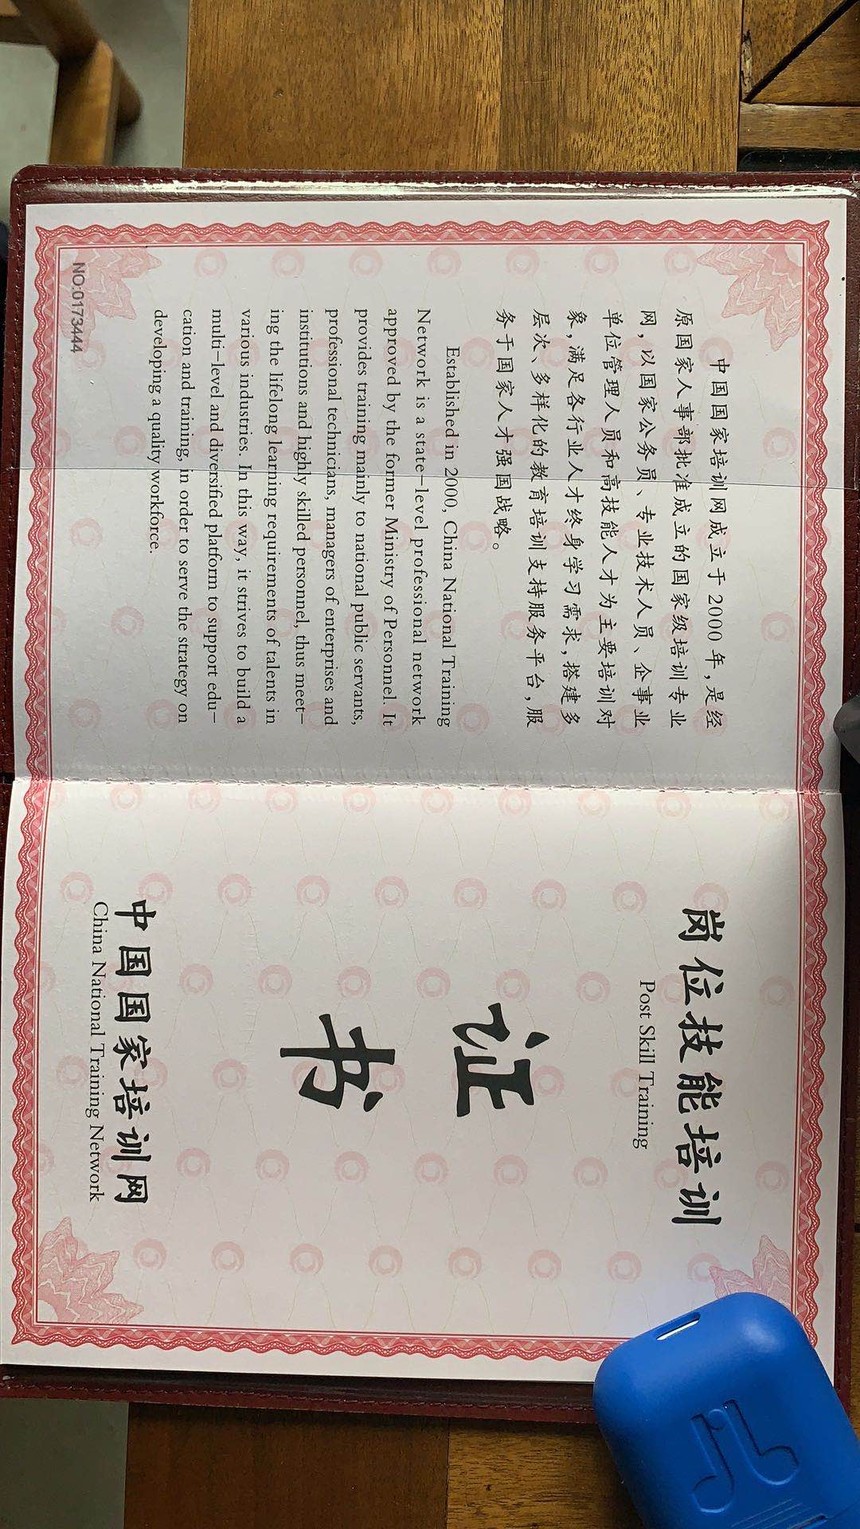 中国国家培训网成立于 2000 年，是经
原国家人事部批准成立的国家级培训专业
网，以国家公务员、专业技术人员、企事业
单位管理人员和高技能人才为主要培训对
象，满足各行业人才终身学习需求，搭建多
层次、多样化的教育培训支持服务平台，服
务于国家人才强国战略。
Established in 2000, China National Training
Network is a state-level professional network
approved by the former Ministry of Personnel. It
provides training mainly to national public servants,
professional technicians, managers of enterprises and
institutions and highly skilled personnel, thus meet-
ing the lifelong learning requirements of talents in
various industries. In this way, it strives to build a
multi-level and diversified platform to support edu-
cation and training, in order to serve the strategy on
developing a quality workforce.
NO:0173444
岗位技能培训
Post Skill Training
证
书
中国国家培训网
China National Training Network